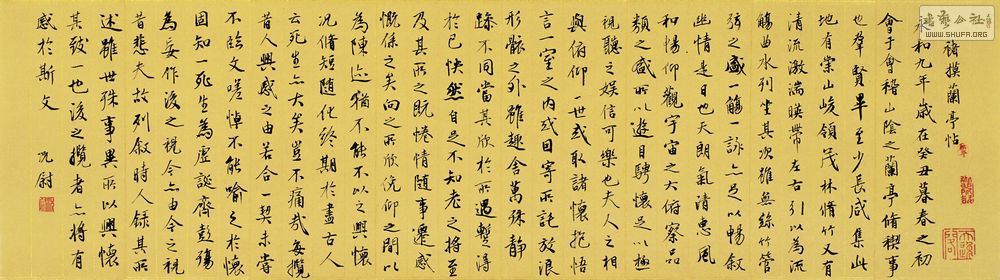 褚摸蘭亭帖
永和九年歲在癸丑暮春之初
會于會稽山陰之蘭亭脩禊事
也羣賢畢至少長咸集此
地有崇山峻領茂林脩竹又有
清流激湍暎帶左右引以為流
觴曲水列坐其次雖無絲竹管
弦之盛一觴一詠亦足以暢叙
幽情是日也天朗氣清惠風
和暢仰觀宇宙之大俯察品
類之盛所以遊目騁懷足以極
視聽之娛信可樂也夫人之相
與俯仰一世或取諸懷抱悟
言一室之內或因寄所託放浪
形骸之外雖趣舍萬殊靜
躁不同當其欣於所遇暫得
於己怏然自足不知老之將至
及其所之既惓情隨事遷感
慨係之矣向之所欣俛仰之間以
為陳迹猶不能不以之興懷
況脩短隨化終期於盡古人
云死生亦大矣豈不痛哉每攬
昔人興感之由若合一契未嘗
不臨文嗟悼不能喻之於懷
固知一死生為虛誕齊彭殤
為妄作後之視今亦由今之視
昔悲夫故列叙時人錄其所
述雖世殊事異所以興懷
其致一也後之攬者亦將有
感於斯文
WWW.SHUFA.ORG